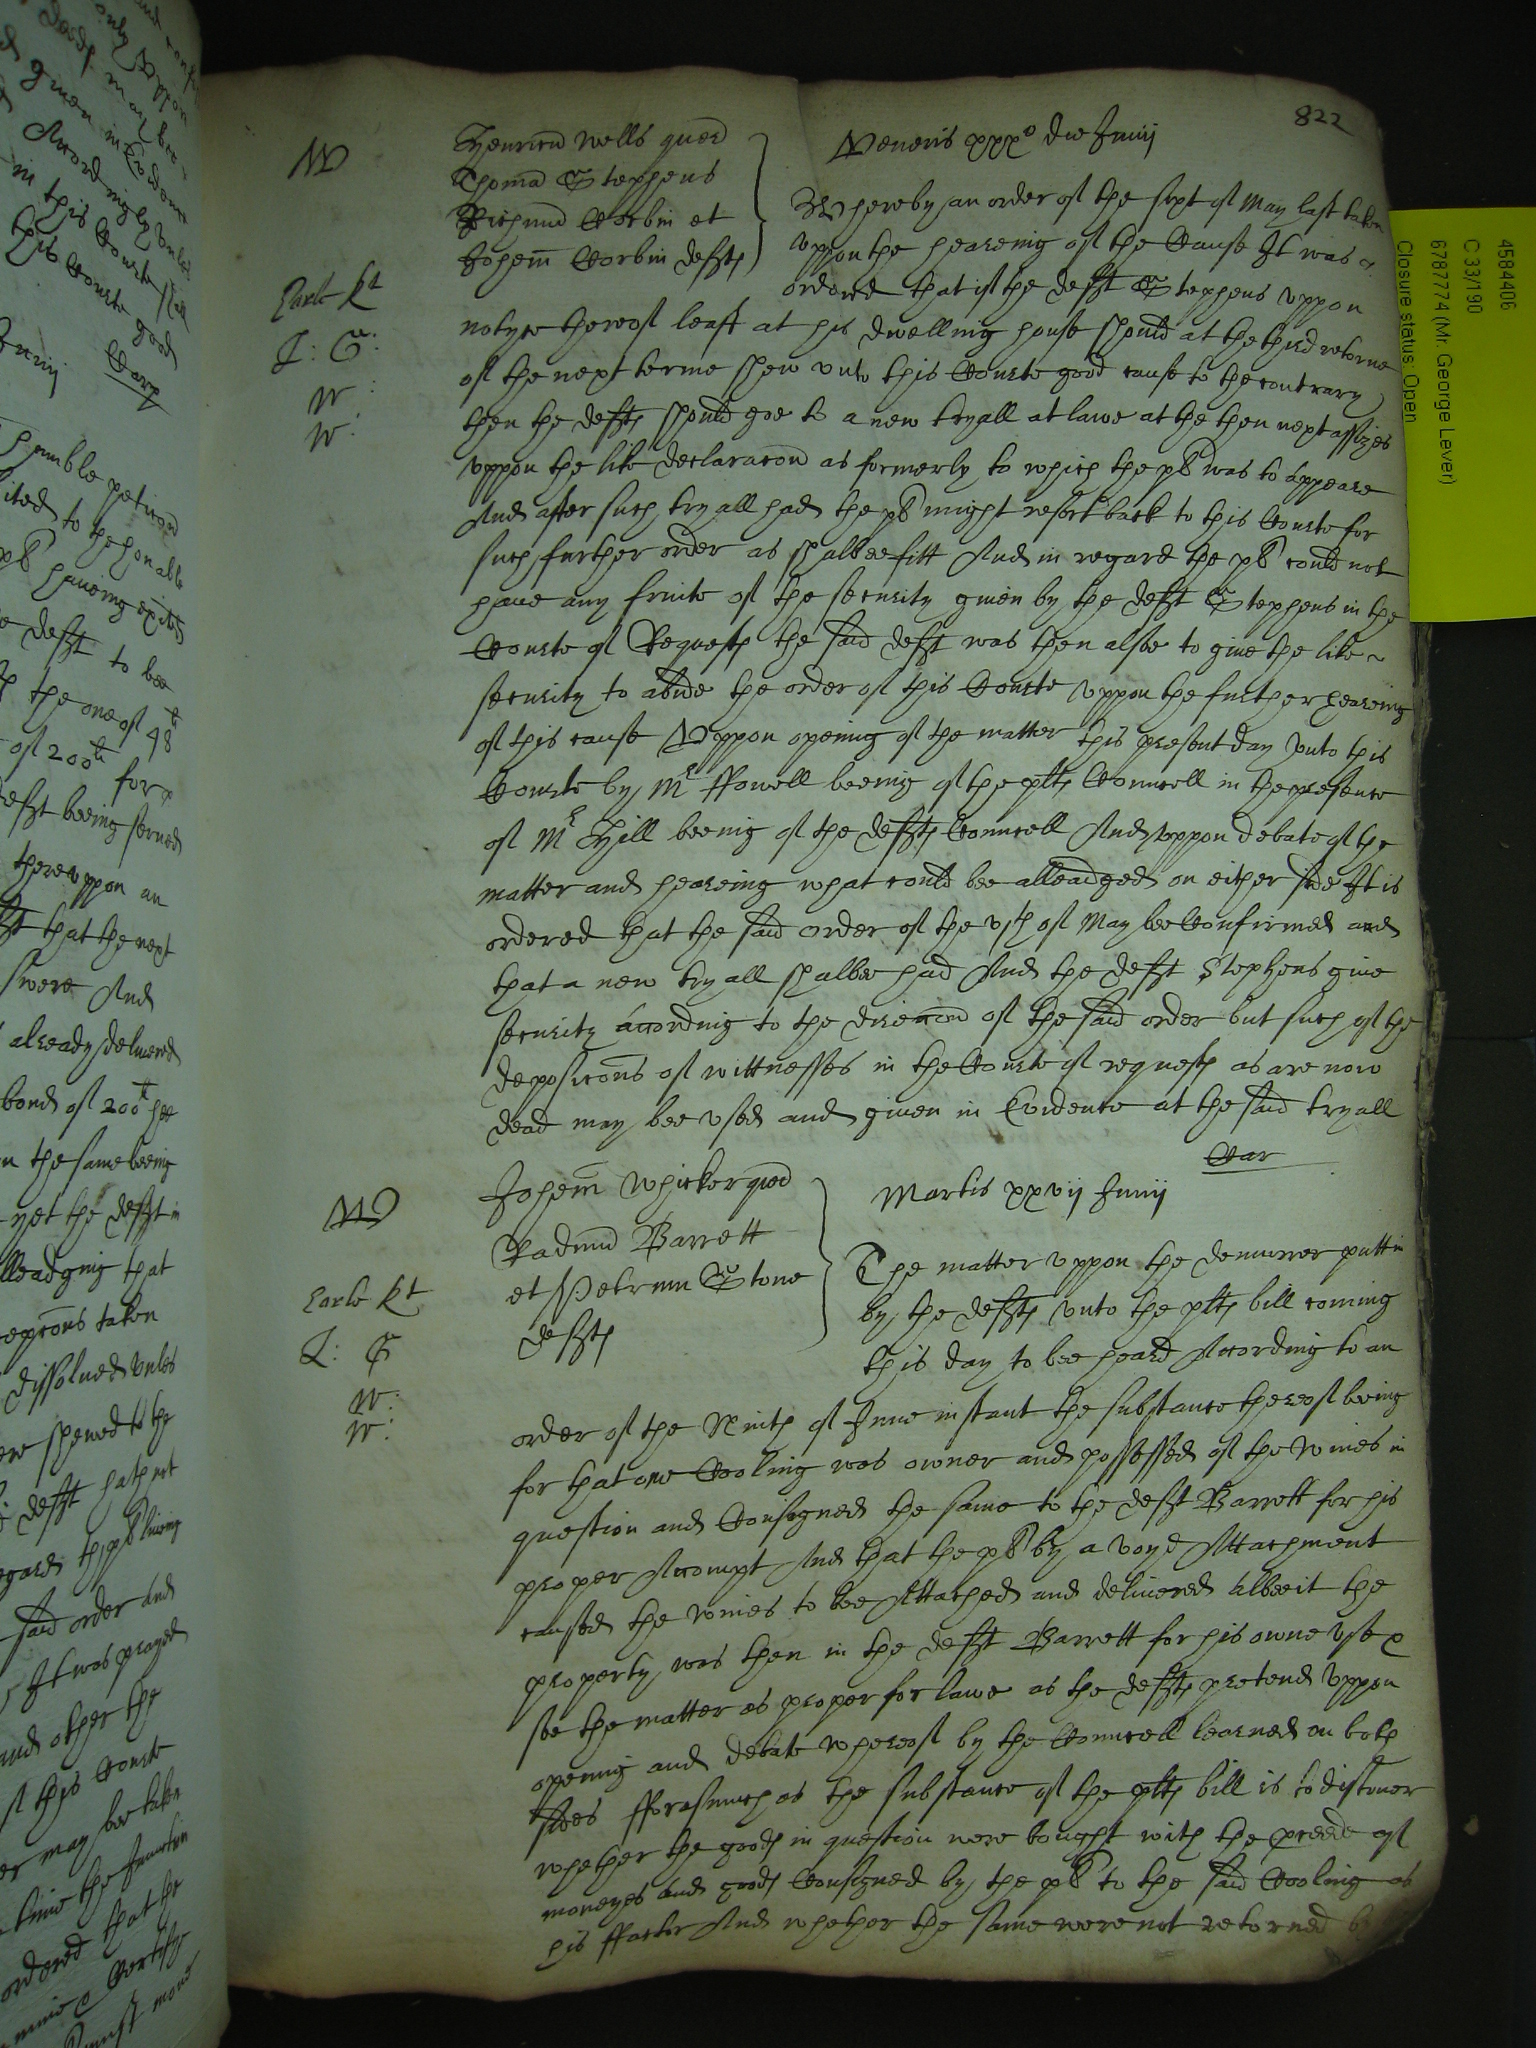 822
W
Henricu Wells quer
Thoma Stephens
Richmd Corbin et
Johem Corbin defts
Veneris xxx° die Junij
Earle kt
L: S:
W:
W:
Whereby an order of the sixt of May last taken
uppon the heareing of the Cause It was
ordered that if the deft Stephens uppon
notyce thereof left at his dwelling house should at the third retorne
of the next terme shew unto this Courte good cause to the contrary
then the defts should goe to a new tryall at lawe at the then next assizes
uppon the like declaracon as formerly to which the pl was to appeare
And after such tryall had the pl might resort back to this Courte for
such further order as shalbee fitt And in regard the pl could not
have any fruite of the security given by the deft Stephens in the
Courte of Requests the said deft was then alsoe to give the like
security to abide the order of this Courte uppon the further heareing
of this cause Uppon opening of the matter this present day unto this
Courte by Mr ffowell beeing of the plts Councell in the presence
of Mr Hill beeing of the defts Councell And uppon debate of the
matter and heareing what could bee alleadged on either side It is
ordered that the said order of the vjth of May bee Confirmed and
that a new tryall shalbee had And the deft Stephens give
security according to the direccon of the said order but such of the
deposicons of wittnesses in the Courte of requests as are now
dead may bee used and given in Evidence at the said tryall
Car
W
Johem Whicker quer
Radmd Barrett
et Petrum Stone
defts
Martis xxvij Junij
Earle kt
L: S
W:
W:
The matter uppon the demurrer putt in
by the defts unto the plts bill coming
this day to bee heard According to an
order of the Ninth of June instant the substance thereof being
for that one Cooling was owner and possessed of the wines in
question and Consigned the same to the deft Barrett for his
proper Accompt And that the pl by a voyd Attachment
caused the wines to bee Attached and delivered albeeit the
property was then in the deft Barrett for his owne use
soe the matter is proper for lawe as the defts pretend Uppon
opening and debate whereof by the Councell learned on both
sides fforasmuch as the substance of the plts bill is to discover
whether the goods in question were bought with the proceede of
moneyes and goods Consigned by the pl to the said Cooling as
his ffactor And whether the same were not retorned
4584406
C 33/190
6787774 (Mr. George Lever)
Closure status: Open
in this Courte
this Courte good
Corp
Junij
humble peticon
to the honable
pl haveing
deft to bee
the one of 48
of 200li for
deft beeing served
thereuppon an
that the next
And
already delivered
bond of 200li hee
the same beeing
yet the deft in
alleadging that
taken
dissolved unles
shewed to the
deft hath not
said order and
It was prayed
and other the
of this Courte
may bee taken
time the
ordered that the